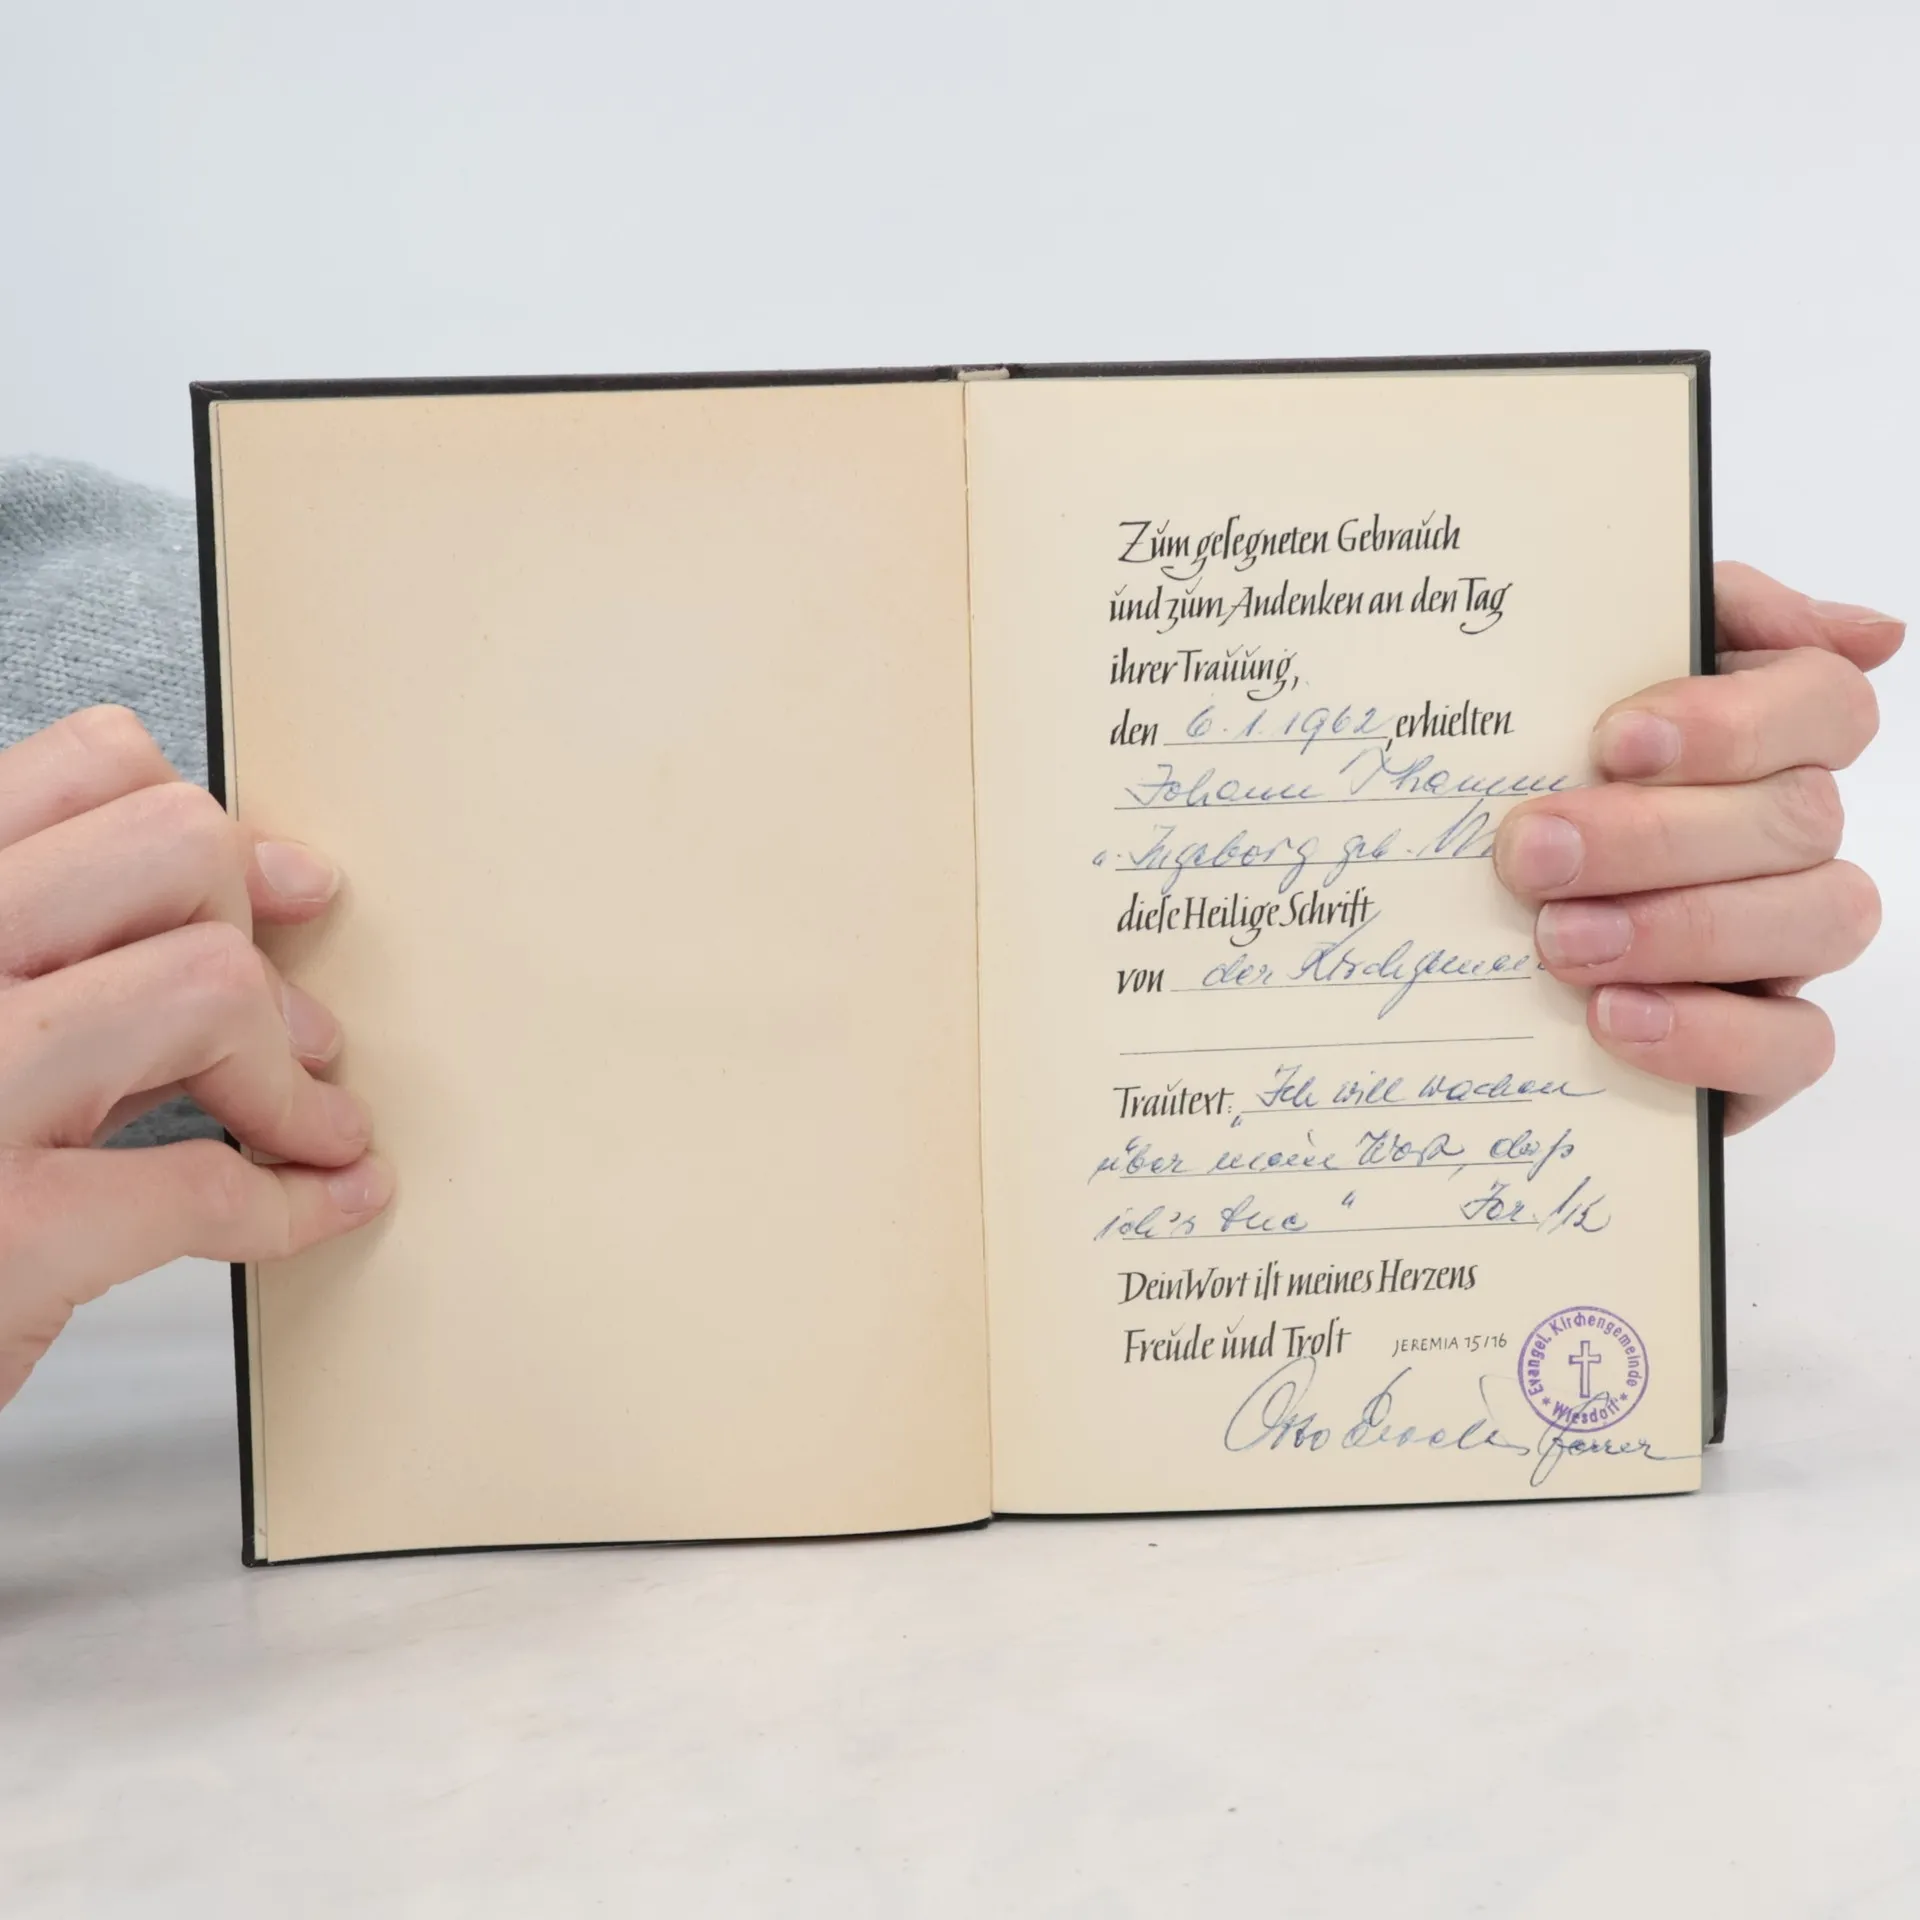 Zum geſegneten Gebrauch
und zum Andenken an den Tag
ihrer Trauung,
den 6.1.1962, erhielten
Johann Thamm
u. Ingeborg geb.
dieſe Heilige Schrift
von der
Trautext: „Ich will wachen
über mein Wort, daß
ich's tue“ Jer. 1/12
Dein Wort iſt meines Herzens
Freude und Troſt JEREMIA 15/16
Evangel. Kirchengemeinde
* Wiesdorf *
Otto Pfarrer